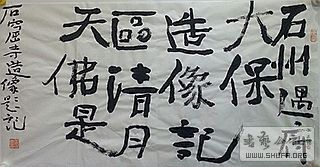 石州遇
大保
造像記
區清月
天佛是
石窟寺造像題記
WWW.SHUFA.ORG